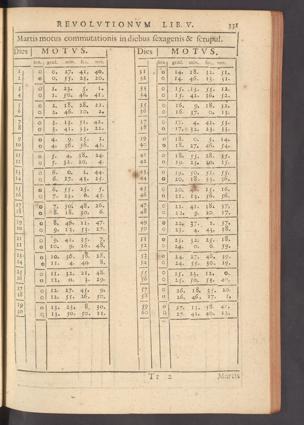 REVOLUTIONVM LIB. V. 331
Martis motus commutationis in diebus sexagenis & scrupul.
Dies MOTVS. Dies MOTVS.
sex. grad. min. sec. ter. sex. grad. min. sec. ter.
1 0 0. 27. 41. 40. 31 0 14. 18. 31. 51.
2 0 0. 55. 23. 20. 32 0 14. 46. 13. 31.
3 0 1. 23. 5. 1. 33 0 15. 13. 55. 12.
4 0 1. 50. 46. 41. 34 0 15. 41. 36. 52.
5 0 2. 18. 28. 21. 35 0 16. 9. 18. 32.
6 0 2. 46. 10. 2. 36 0 16. 37. 0. 13.
7 0 3. 13. 51. 42. 37 0 17. 4. 41. 53.
8 0 3. 41. 33. 22. 38 0 17. 32. 23. 33.
9 0 4. 9. 15. 3. 39 0 18. 0. 5. 14.
10 0 4. 36. 56. 43. 40 0 18. 27. 46. 54.
11 0 5. 4. 38. 24. 41 0 18. 55. 28. 35.
12 0 5. 32. 20. 4. 42 0 19. 23. 10. 15.
13 0 6. 0. 1. 44. 43 0 19. 50. 51. 55.
14 0 6. 27. 43. 25. 44 0 20. 18. 33. 36.
15 0 6. 55. 25. 5. 45 0 20. 46. 15. 16.
16 0 7. 23. 6. 45. 46 0 21. 13. 56. 56.
17 0 7. 50. 48. 26. 47 0 21. 41. 38. 37.
18 0 8. 18. 30. 6. 48 0 22. 9. 20. 17.
19 0 8. 46. 11. 47. 49 0 22. 37. 1. 57.
20 0 9. 13. 53. 27. 50 0 23. 4. 43. 38.
21 0 9. 41. 35. 7. 51 0 23. 32. 25. 18.
22 0 10. 9. 16. 48. 52 0 24. 0. 6. 59.
23 0 10. 36. 58. 28. 53 0 24. 27. 48. 39.
24 0 11. 4. 40. 8. 54 0 24. 55. 30. 19.
25 0 11. 32. 21. 48. 55 0 25. 23. 12. 0.
26 0 12. 0. 3. 29. 56 0 25. 50. 53. 40.
27 0 12. 27. 45. 9. 57 0 26. 18. 35. 20.
28 0 12. 55. 26. 50. 58 0 26. 46. 17. 1.
29 0 13. 23. 8. 30. 59 0 27. 13. 58. 41.
30 0 13. 50. 50. 11. 60 0 27. 41. 40. 22.
Tt 2 Martis